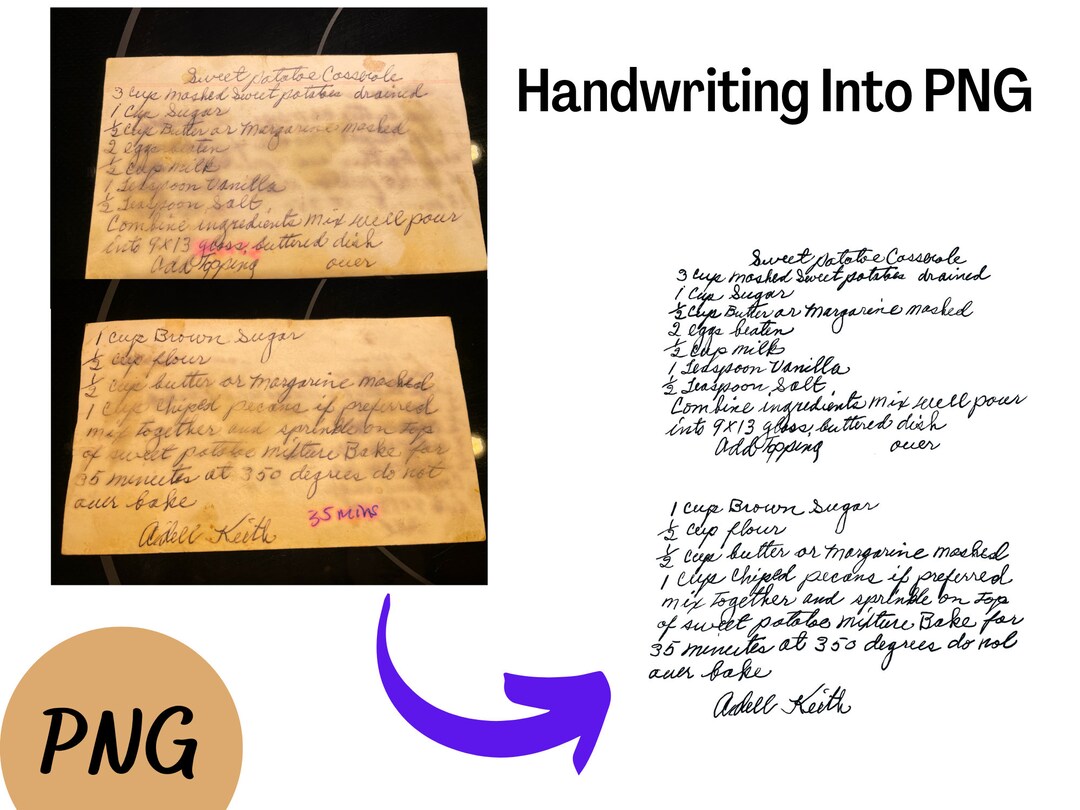 Sweet potatoe Casserole
3 cup mashed Sweet potatoes drained
1 Cup Sugar
½ Cup Butter or Margarine mashed
2 eggs beaten
½ Cup milk
1 Teaspoon Vanilla
½ Teaspoon Salt
Combine ingredients mix well pour
into 9x13 glass, buttered dish
Add Topping over
1 cup Brown Sugar
½ cup flour
½ cup butter or Margarine mashed
1 Cup Chiped pecans if preferred
mix together and sprinkle on top
of sweet potatoe mixture Bake for
35 minuites at 350 degrees do not
over bake
35 mins
Adell Keith
PNG
Handwriting Into PNG
Sweet potatoe Casserole
3 cup mashed Sweet potatoes drained
1 Cup Sugar
½ Cup Butter or Margarine mashed
2 eggs beaten
½ Cup milk
1 Teaspoon Vanilla
½ Teaspoon Salt
Combine ingredients mix well pour
into 9x13 glass, buttered dish
Add Topping over
1 cup Brown Sugar
½ cup flour
½ cup butter or Margarine mashed
1 Cup Chiped pecans if preferred
mix together and sprinkle on top
of sweet potatoe mixture Bake for
35 minuites at 350 degrees do not
over bake
Adell Keith